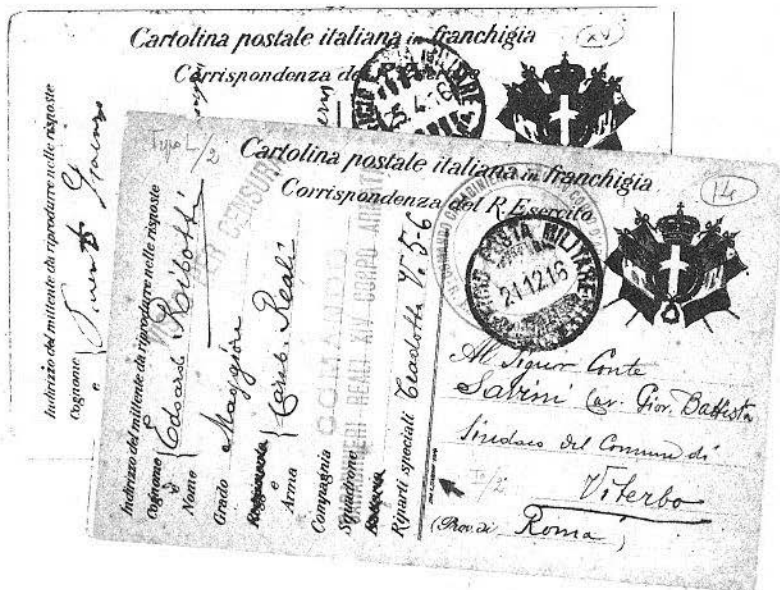 Cartolina postale italiana in franchigia
(XV)
Corrispondenza del R. Esercito
25.4.16
Indirizzo del mittente da riprodurre nelle risposte
Cognome
e
Tipo L/2
Cartolina postale italiana in franchigia
14
Corrispondenza del R. Esercito
POSTA MILITARE
21.12.16
PER CENSURA
COMANDO
CARABINIERI REALI XIV CORPO ARMATA
Indirizzo del mittente da riprodurre nelle risposte
Cognome Edoardo Ribotti
e
Nome
Grado Maggiore
Reggimento
e Carab. Reali
Arma
Compagnia
Squadrone
Batteria
Riparti speciali Tradotta V. 5-6
Al Signor Conte
Savini Cav. Giov. Battista
Sindaco del Comune di
Io/2
Viterbo
(Prov. di Roma)